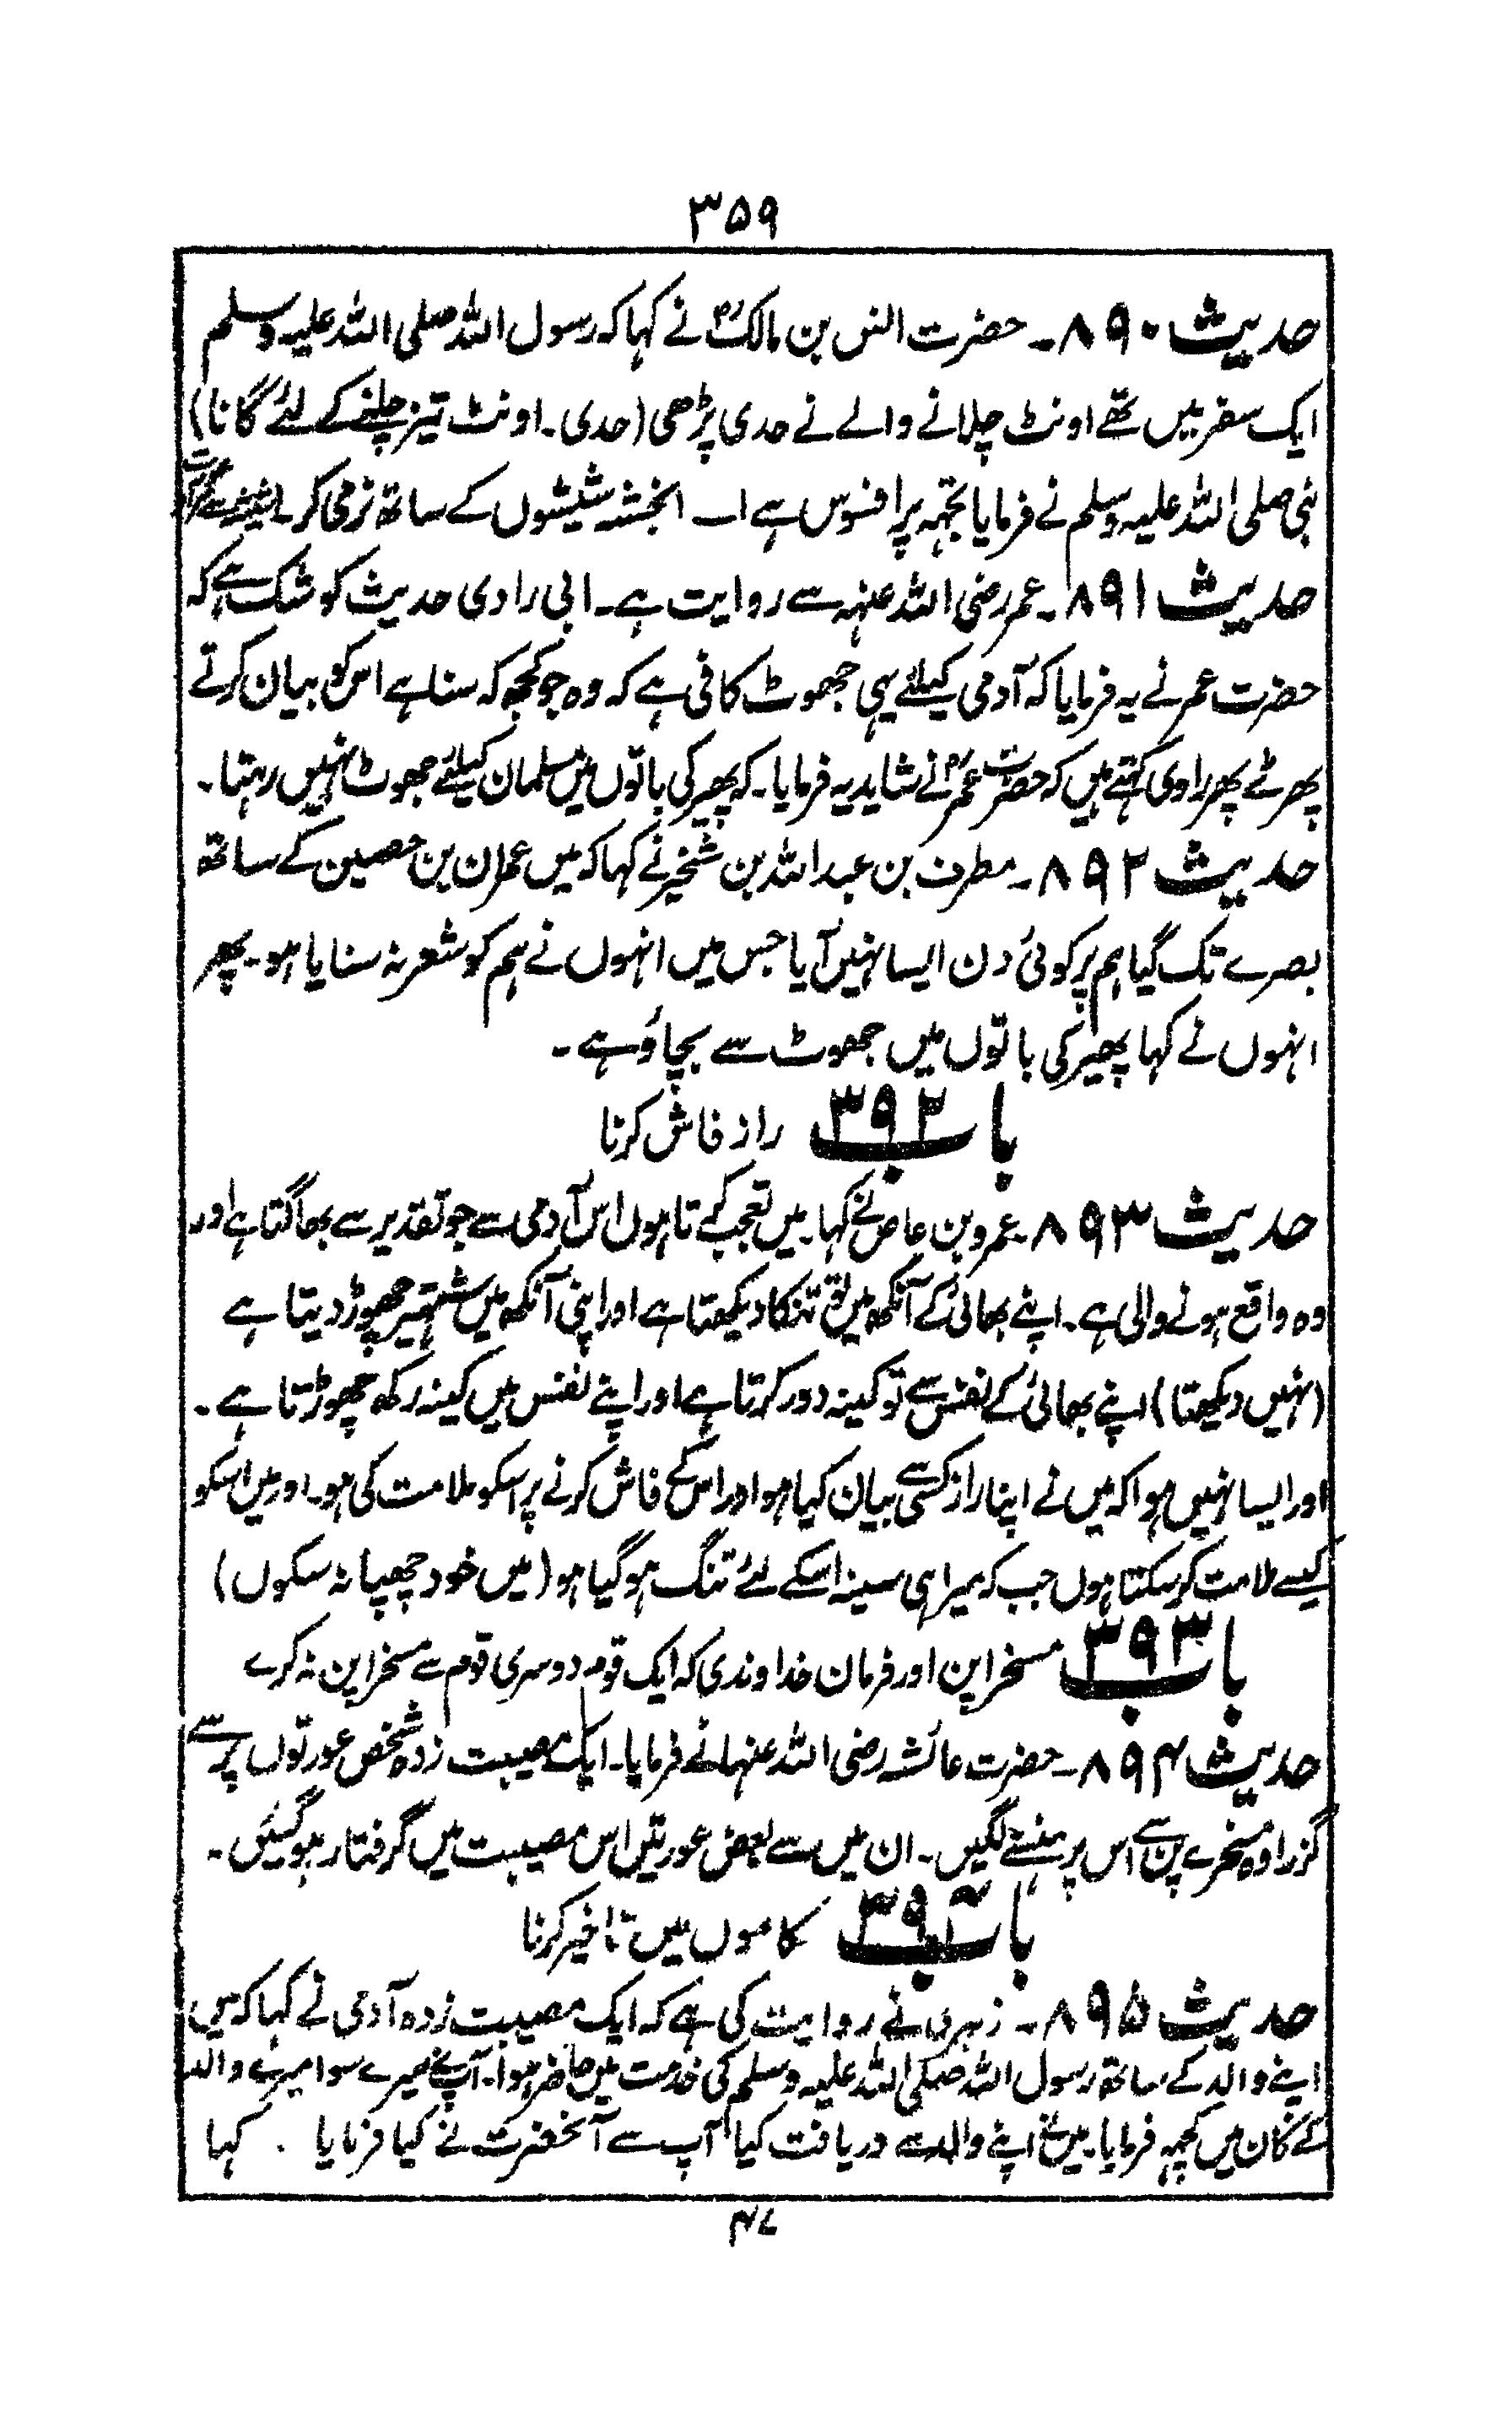 ۳۵۹
حدیث ۸۹۰۔ حضرت انس بن مالکؓ نے کہا کہ رسول اللہ صلی اللہ علیہ وسلم
ایک سفر میں تھے اونٹ چلانے والے نے حدی پڑھی (حدی۔ اونٹ تیز چلنے کے لئے گانا)
نبی صلی اللہ علیہ وسلم نے فرمایا تجھہ پر افسوس ہے اے انجشہ شیشوں کے ساتھ نرمی کر۔
حدیث ۸۹۱۔ عمر رضی اللہ عنہہ سے روایت ہے۔ ابی راوی حدیث کو شک ہے کہ
حضرت عمر نے یہ فرمایا کہ آدمی کیلئے یہی جھوٹ کافی ہے کہ وہ جو کچھ کہ سنا ہے اس کو بیان کرتے
پھرے پھر راوی کہتے ہیں کہ حضرت عمرؓ نے شاید یہ فرمایا۔ کہ پھیر کی باتوں میں مسلمان کیلئے جھوٹ نہیں رہتا۔
حدیث ۸۹۲۔ مطرف بن عبداللہ بن شخیر نے کہا کہ میں عمران بن حصین کے ساتھ
بصرے تک گیا ہم پر کوئی دن ایسا نہیں آیا جس میں انہوں نے ہم کو شعر نہ سنایا ہو۔ پھر
انہوں نے کہا پھیر کی باتوں میں جھوٹ سے بچاؤ ہے۔
باب ۳۹۲ راز فاش کرنا
حدیث ۸۹۳ عمرو بن عاص نے کہا۔ میں تعجب کرتا ہوں اس آدمی سے جو تقدیر سے بھاگتا ہے اور
وہ واقع ہونے والی ہے۔ اپنے بھائی کے آنکھ میں تو تنکا دیکھتا ہے اور اپنی آنکھ میں شہتیر چھوڑ دیتا ہے
(نہیں دیکھتا) اپنے بھائی کے نفس سے تو کینہ دور کرتا ہے اور اپنے نفس میں کینہ رکھ چھوڑتا ہے۔
اور ایسا نہیں ہوا کہ میں نے اپنا راز کسی سے بیان کیا ہو اور اس کے فاش کرنے پر اسکو ملامت کی ہو۔ اور میں اسکو
کیسے ملامت کر سکتا ہوں جب کہ میرا ہی سینہ اسکے لئے تنگ ہو گیا ہو (میں خود چھپا نہ سکوں)
باب ۳۹۳ مسخراپن اور فرمان خداوندی کہ ایک قوم دوسری قوم سے مسخراپن نہ کرے
حدیث ۸۹۴۔ حضرت عائشہ رضی اللہ عنہا نے فرمایا۔ ایک مصیبت زدہ شخص عورتوں پر سے
گزرا وہ مسخرے پن سے اس پر ہنسنے لگیں۔ ان میں سے بعض عورتیں اس مصیبت میں گرفتار ہو گئیں۔
باب ۳۹۴ کاموں میں تاخیر کرنا
حدیث ۸۹۵۔ زہری نے روایت کی ہے کہ ایک مصیبت زدہ آدمی نے کہا کہ میں
اپنے والد کے ساتھ رسول اللہ صلی اللہ علیہ وسلم کی خدمت میں حاضر ہوا۔ آپ نے میرے سوا میرے والد
کے کان میں کچھہ فرمایا۔ میں نے اپنے والد سے دریافت کیا آپ سے آنحضرت نے کیا فرمایا ۔ کہا
۴۷